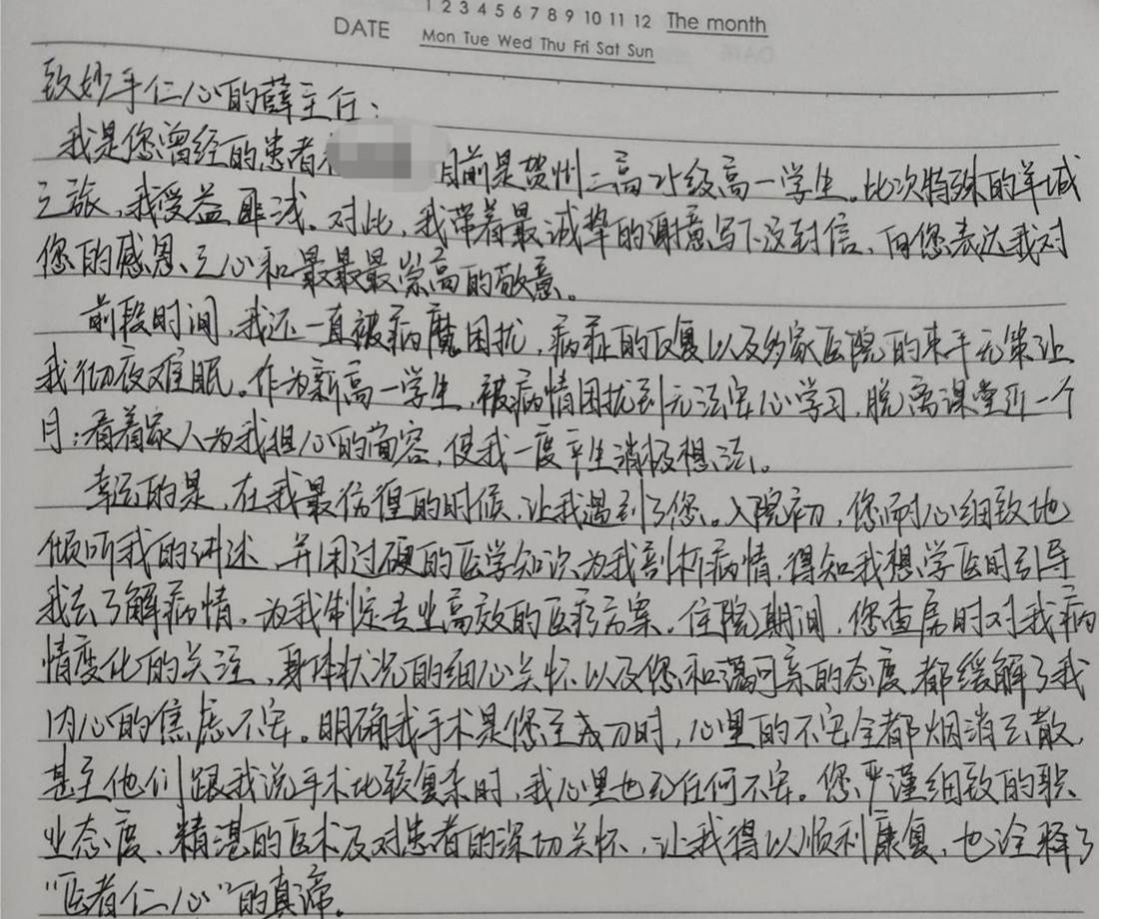 1 2 3 4 5 6 7 8 9 10 11 12 The month
DATE Mon Tue Wed Thu Fri Sat Sun
致妙手仁心的薛主任：
我是您曾经的患者 目前是贺州三高24级高一学生。此次特殊的羊城
之旅，我受益匪浅。对此，我带着最诚挚的谢意写下这封信，向您表达我对
您的感恩之心和最最最崇高的敬意。
前段时间，我还一直被病魔困扰，病症的反复以及多家医院的束手无策让
我彻夜难眠。作为新高一学生，被病情困扰到无法安心学习，脱离课堂近一个
月；看着家人为我担心的面容，使我一度产生消极想法。
幸运的是，在我最彷徨的时候，让我遇到了您。入院初，您耐心细致地
倾听我的讲述，并用过硬的医学知识为我剖析病情，得知我想学医时引导
我去了解病情，为我制定专业高效的医疗方案。住院期间，您查房时对我病
情变化的关注、身体状况的细心关怀以及您和蔼可亲的态度，都缓解了我
内心的焦虑不安。明确我手术是您主刀时，心里的不安全都烟消云散，
甚至他们跟我说手术比较复杂时，我心里也无任何不安。您严谨细致的职
业态度、精湛的医术及对患者的深切关怀，让我得以顺利康复，也诠释了
“医者仁心”的真谛。